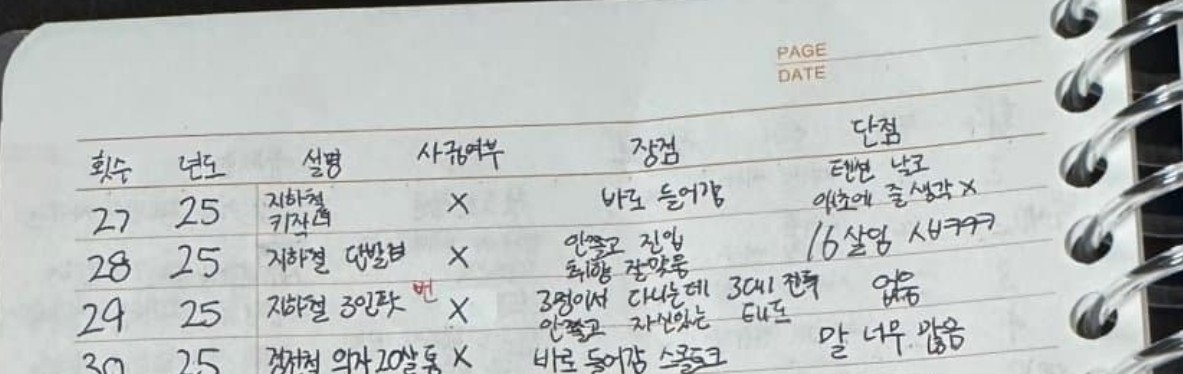 PAGE
DATE
횟수 년도 설명 사귐여부 장점 단점
27 25 지하철 키작녀 X 바로 들어감 텐션 낮고 애초에 줄 생각 X
28 25 지하철 단발녀 X 안쫄고 진입 취향 잘맞음 16살임 ㅅㅂㅋㅋㅋ
29 25 지하철 3인팟 번 X 3명이서 다니는데 3대1 전투 안쫄고 자신있는 태도 없음
30 25 의자 20살 X 바로 들어감 스몰토크 말 너무 많음